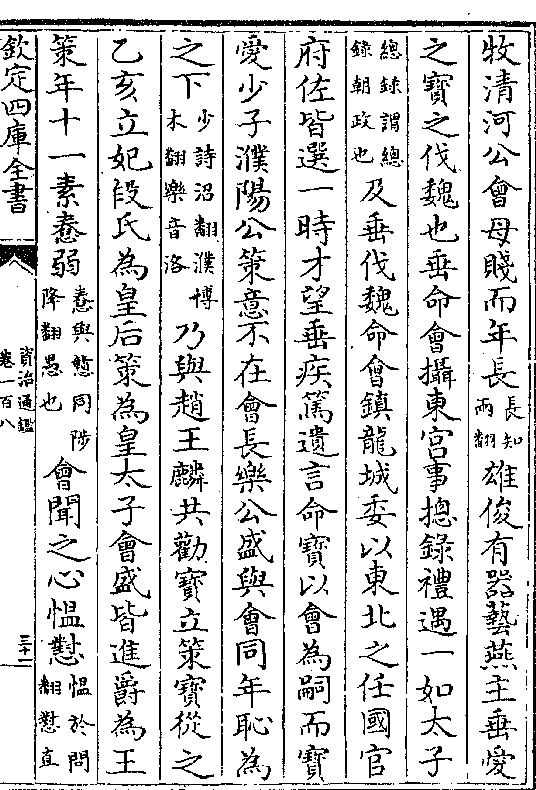 牧清河公會母賤而年長長知兩翻雄俊有器藝燕主垂愛
之寶之伐魏也垂命會攝東宮事揔錄禮遇一如太子
總錄謂總錄朝政也及垂伐魏命會鎮龍城委以東北之任國官
府佐皆選一時才望垂疾篤遺言命寶以會為嗣而寶
愛少子濮陽公策意不在會長樂公盛與會同年恥為
之下少詩沼翻濮博木翻樂音洛乃與趙王麟共勸寶立策寶從之
乙亥立妃段氏為皇后策為皇太子會盛皆進爵為王
策年十一素憃弱憃與戅同陟降翻愚也會聞之心愠懟愠於問翻懟直
欽定四庫全書
資治通鑑
卷一百八
三十一